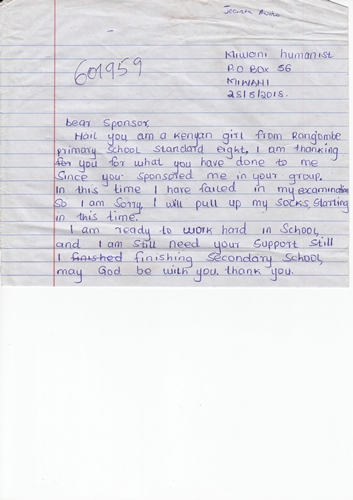 601959
Miwani humanist
P.O BOX 56
MIWANI
28/5/2018.
Dear Sponsor.
Hail you am a Kenyan girl from Rongombe
primary School Standard eight. I am thanking
for you for what you have done to me
Since you Sponsored me in your group.
In this time I have failed in my examination
So I am Sorry, I will pull up my socks, Starting
in this time.
I am ready to work hard in School,
and I am Still need your Support Still
I finished finishing Secondary School,
may God be with you. thank you.